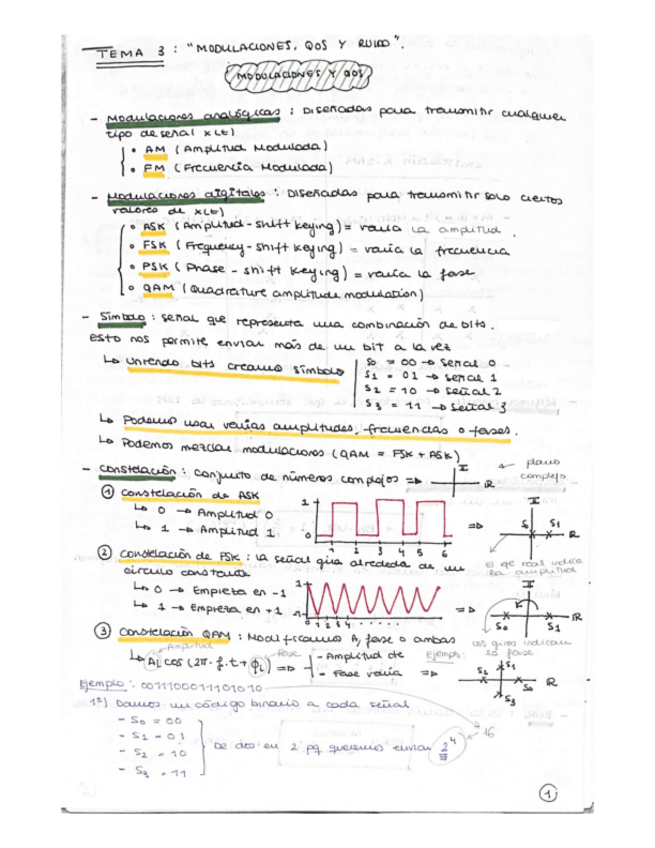 TEMA 3 : "MODULACIONES, QOS Y RUIDO".
MODULACIONES Y QOS
- Modulaciones analógicas : Diseñadas para transmitir cualquier
tipo de señal x(t)
• AM (Amplitud Modulada)
• FM (Frecuencia Modulada)
- Modulaciones digitales : Diseñadas para transmitir solo ciertos
valores de x(t)
• ASK (Amplitud-shift keying) = varía la amplitud.
• FSK (Frequency-shift keying) = varía la frecuencia
• PSK (Phase-shift keying) = varía la fase
• QAM (Quadrature amplitude modulation)
- Símbolo : señal que representa una combinación de bits.
Esto nos permite enviar más de un bit a la vez
↳ Uniendo bits creamos símbolo
S0 = 00 → señal 0
S1 = 01 → señal 1
S2 = 10 → señal 2
S3 = 11 → señal 3
↳ Podemos usar varias amplitudes, frecuencias o fases.
↳ Podemos mezclar modulaciones (QAM = FSK + ASK)
- Constelación : conjunto de números complejos => I R ← plano complejo
① Constelación de ASK
↳ 0 → Amplitud 0
↳ 1 → Amplitud 1
1 0 1 2 3 4 5 6
=> I S0 S1 R
El eje real indica la amplitud
② Constelación de PSK : la señal gira alrededor de un
círculo constante
↳ 0 → Empieza en -1
↳ 1 → Empieza en +1
1 -1 0 1 2 3 4 .....
=> I S0 S1 R
Los giros indican la fase
③ Constelación QAM : Modificamos A, fase o ambas
Amplitud Fase
↳ Ai cos (2π · f · t + ϕi) =>
- Amplitud de
- Fase varía
Ejemplo:
=> S2 S1 S0 S3 R
Ejemplo : 0011100011101010
1º) Damos un código binario a cada señal
- S0 = 00
- S1 = 01
- S2 = 10
- S3 = 11
De dos en 2 pq queremos enviar 2⁴ → 16
1